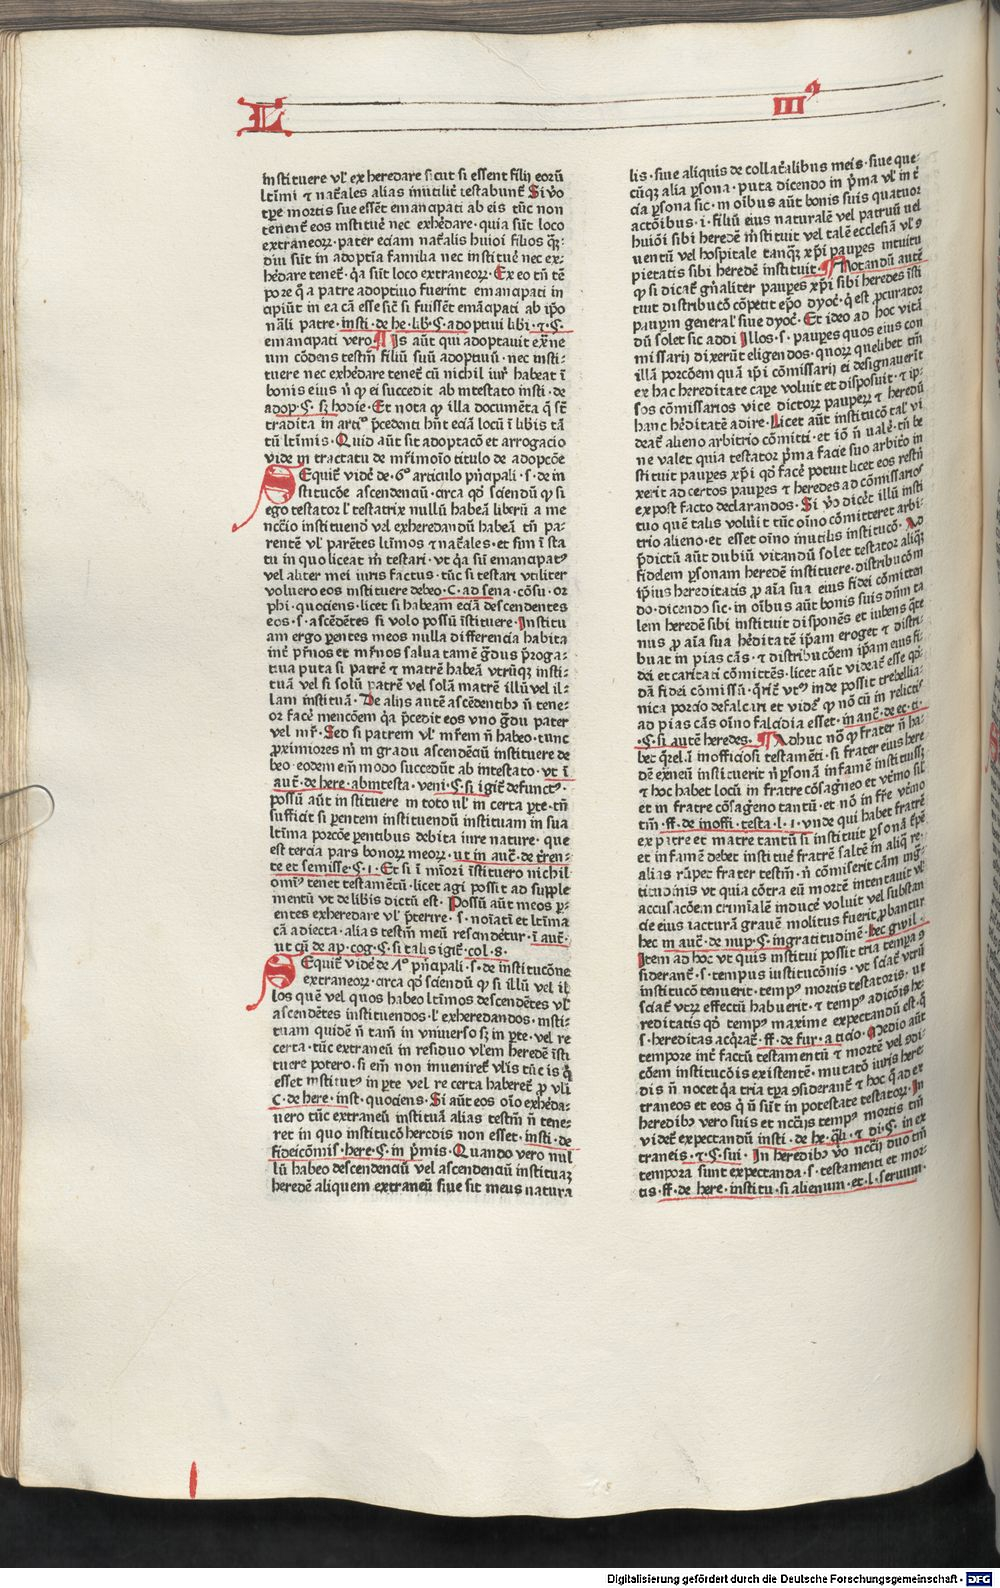 L IIIꝰ
instituere vl̕ exheredare sicut si essent filij eoꝝū
ltīmi ⁊ nat̄ales alias inutilit̄ testabunt̄ Si v̕o
tꝑe mortis sue essēt emancipati ab eis tūc non
tenent̄ eos instituē nec exhēdare · quia sūt loco
extraneoꝝ · pater eciam nat̄alis huiōi filios qꝫ̄
diu sūt in adoptīa familia nec instituē nec ex⸗
hēdare tenet̄ · q̄a sūt loco extraneoꝝ · Ex eo tn̄ tē
pore q̄ a patre adoptiuo fuerint emancipati in
cipiūt in ea cā esse sic̄ si fuissēt emācipati ab ip̄o
nāli patre · insti · de he · lib̄ · ꝯ · adoptiui lib̄i · ⁊ · ꝯ ·
emancipati vero ¶ Is aūt qui adoptauit ex̄ne
um cōdens testm̄ filiū suū adoptiuū · nec insti⸗
tuere nec exhēdare tenet̄ cū nichil iur̄ habeat ī
bonis eius n̄ ꝙ ei succedit ab intestato insti · de
adop · ꝯ · sꝫ hodie · Et nota ꝙ illa documēta q̄ st̄
tradita in artī° p̄cedenti hn̄t eciā locū ī libis tā
tū ltīmis · Quid aūt sit adoptacō et arrogacio
vide in tractatu de mr̄imoīo titulo de adopcōe
SEquit̄ vidē de · 6° articulo pn̄cipali · s · de in
stitucōe ascendenciū · circa qd̄ sciendū ꝙ si
ego testator l̕ testatrix nullū habeā liberū a me
nec̄cio instituend̄ vel exheredandū habeā tn̄ pa⸗
rentē vl̕ parētes ltīmos ⁊ nat̄ales · et sim ī sta
tu in quo liceat m̄ testari · vt q̄a sū emancipatꝰ
vel aliter mei iuris factus · tūc si testari vtiliter
voluero eos instituere debeo · C · ad sena · cōsu · or
phi · quociens · licet si habeam eciā descendentes
eos · s · ascēdētes si volo possū īstituere · Institu
am ergo ꝑentes meos nulla differencia habita
int̄ pr̄nos et mr̄nos salua tamē g̊dus p̄roga⸗
tiua puta si patrē ⁊ matrē habeā vtrūqꝫ insti⸗
tuā vel si solū patrē vel solā matrē illū vel il⸗
lam instituā · De alijs autē ascēdentibꝰ n̄ tene⸗
or facē mencōem q̄a p̄cedit eos vno g̊du pater
vel mr̄ · Sed si patrem vl̕ mr̄em n̄ habeo · tunc
ꝓximiores m̄ in gradu ascendēciū instituere de
beo · eodem em̄ modo succedūt ab intestato · vt ī
auc̄ · de here · ab intesta · veni · ꝯ · si igit̄ defunctꝰ ·
possū aūt instituere in toto vl̕ in certa ꝑte · tn̄
sufficit si ꝑentem instituendū instituam in sua
ltīma porcōe ꝑentibus debita iure nature · que
est tercia pars bonoꝝ meoꝝ · ut in auc̄ · de tr̄ien⸗
te et semisse · ꝯ · 1 · Et si ī mīori īstituero nichil
omīꝰ tenet testamētū · licet agi possit ad supple
mentū vt de libis dictū est · Possū aūt meos ꝑ⸗
entes exheredare vl̕ p̄terire · s · noīati et ltīma
cā adiecta · alias testm̄ meū rescindētur · ī auc̄ ·
ut cū de ap · cog · ꝯ · si talis igit̄ · col · 8 ·
SEquit̄ vidē de ·7° pn̄cipali · s · de institucōne
extraneoꝝ · circa qd̄ sciendū ꝙ si illū vel il
los quē vel quos habeo ltīmos descendētes vl̕
ascendētes instituendos · l̕ exheredandos · insti⸗
tuam quidē n̄ tam̄ in vniuerso sꝫ in ꝑte · vel re
certa · tūc extraneū in residuo vl̕em heredē īsti
tuere potero · si em̄ non inuenirent̄ vlis tūc is q̄
esset institutꝰ in ꝑte vel re certa haberet̄ ꝓ vli
C · de here · inst · quociens · Si aūt eos oīo exhēda⸗
uero tūc extraneū instituā alias testm̄ n̄ tene⸗
ret in quo institucō heredis non esset · insti · de
fideicōmis · here · ꝯ · in pm̄is · Quando vero nul
lū habeo descendenciū vel ascendenciū instituaꝫ
heredē aliquem extraneū siue sit meus natura
lis · siue aliquis de collat̄alibus meis · siue que⸗
cūqꝫ alia ꝑsona · puta dicendo in pm̄a vl̕ in t̄
cia ꝑsona sic · in oībus aūt bonis suis quatuor
actōibus · i · filiū eius naturalē vel patruū uel
huiōi sibi heredē īnstituit vel talē ecclesiā vl̕ ꝯ
uentū vel hospitale tanqꝫ xp̄i pauꝑes intuitu
pietatis sibi heredē instituit · ¶ Notandū autē
ꝙ si dicat̄ gn̄aliter pauꝑes xp̄i sibi heredes īsti
tuit distribucō cōpetit ep̄o dyoc̄ · q̄ est ꝓcurator
pauꝑm general̕ siue dyoc̄ · Et ideo ad hoc vitā
dū solet sic addi Illos · s · pauꝑes quos eius con
missarij dixerūt eligendos · quoꝝ quelibet tm̄
illā porcōem quā ip̄i cōmissarij ei designauerit
ex hac hereditate caꝑe voluit et disposuit · ⁊ ip⸗
sos cōmissarios vice dictoꝝ pauꝑeꝝ ⁊ heredū
hanc hēditatē adire · Licet aūt institucō tal̕ vi
deat̄ alieno arbitrio cōmitti · et iō n̄ ualē · tn̄ be
ne valet quia testator pm̄a facie suo arbit̄o in
stituit pauꝑes xp̄i qd̄ facē potuit licet eos restn̄
xerit ad certos pauꝑes ⁊ heredes ad cōmissarios
ex post facto declarandos · Si v̕o dicēt illū insti
tuo quē talis volūit tūc oīno cōmitteret arbi⸗
trio alieno · et esset oīno inutilis institucō · Ad
p̄dictū aūt dubiū vitandū solet testator aliqꝫ
fidelem ꝑsonam heredē instituere · distribucōm
ip̄ius hereditatis ꝓ aīa sua eius fidei cōmitten
do · dicendo sic · in oībus aūt bonis suis dn̄m ta
lem heredē sibi instituit disponēs et iubens q̄te
nus ꝓ aīa sua hēditatē ip̄am eroget ⁊ distri⸗
buat in pias cās · ⁊ distribucōem ip̄am eius fi⸗
dei et caritati cōmittēs · licet aūt videat̄ esse qd̄
dā fidei cōmissū · q̄rit̄ vtꝝ inde possit trebellia⸗
nica porcio defalcari et vidēt̄ ꝙ nō cū in relictis
ad pias cās oīno falcidia esset · in auc̄ · de ec · ti ·
· ꝯ · si autē heredes · ¶ Adhuc nō ꝙ frater n̄ ha⸗
bet q̄rel̄ā inofficiosi testamēti · si frater eius here
dē exneū instituerit n̄ ꝑsonā infamē instituissꝫ
⁊ hoc habet locū in fratre cōsagneo et vt̄mo sil̕
et in fratre cōsagneo tantū · et nō in fr̄e vt̄mo
tm̄ · ff · de inoffi · testa · l · 1 · vnde qui habet fratrē
ex patre et matre tantū si instituit ꝑsonā tꝑē
et infamē debet instituē fratrē saltē in aliq̄ re ·
alias rūpet frater testm̄ · n̄ cōmiserit cām ing̊⸗
titudinis vt quia cōtra eū mortē intentauit vl̕
accusacōem crimīalē inducē voluit vel substan
cie eius iacturā grauē molitus fuerit ꝓbantur
hec in auc̄ · de nup · ꝯ · ingratitudinē · hec gwil ·
Item ad hoc vt quis institui possit tria tempa ꝯ
siderant̄ · s · tempus institucōnis · vt sciat̄ vtrū
institucō tenuerit · tempꝰ mortis testatoris · ut
sciat̄ vtꝝ effectū habuerit · ⁊ tempꝰ adicōis he⸗
reditatis qd̄ tempꝰ maxime expectandū est · q̄
s · hereditas acq̄rat̄ · ff · de fur · a ticio · Medio aūt
tempore int̄ factū testamentū ⁊ mortē vel ꝯdi⸗
cōem institucōis existentē · mutacō iuris here⸗
dis n̄ nocet q̄a tria tꝑa ꝯsiderant̄ ⁊ hoc q̄ ad ex
traneos et eos q̄ n̄ sūt in potestate testatoꝝ · In
heredibꝫ vero suis et nc̄cijs tempꝰ mortis tm̄
videt̄ expectandū insti · de he · q̄li · ⁊ di · ꝯ · in ex
traneis · ⁊ · ꝯ · sui · In heredibꝫ v̕o nc̄cijs duo tm̄
tempora sunt expectanda · s · testamenti et mor⸗
tis · ff · de here · institu · si alienum · et · l · seruum ·
Digitalisierung gefördert durch die Deutsche Forschungsgemeinschaft - DFG